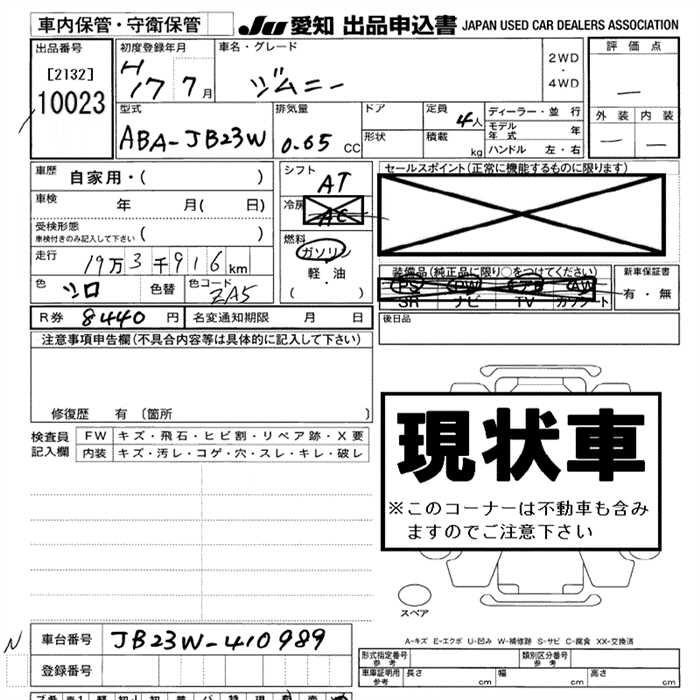 車内保管・守衛保管 JU 愛知 出品申込書 JAPAN USED CAR DEALERS ASSOCIATION
出品番号 初度登録年月 車名・グレード 評価点
[2132] H17 7月 ジムニー 2WD・4WD －
10023
型式 排気量 ドア 定員 4人 ディーラー・並行 外装 内装
ABA-JB23W 0.65 CC 形状 積載 kg モデル年式 年 － －
ハンドル 左・右
車歴 自家用・( ) シフト AT セールスポイント(正常に機能するものに限ります)
車検 年 月( 日) 冷房 AC
受検形態 ( )
車検付きのみ記入して下さい
燃料 ガソリン
走行 19万3千916km 軽・油 装備品(純正品に限り○をつけてください) 新車保証書
色 シロ 色替 色コード ZA5 ( ) PS PW エアB AW 有・無
SR ナビ TV カワシート
R券 8440円 名変通知期限 月 日 後日品
注意事項申告欄(不具合内容等は具体的に記入して下さい)
修復歴 有 [箇所 ]
検査員 FW キズ・飛石・ヒビ割・リペア跡・X要
記入欄 内装 キズ・汚レ・コゲ・穴・スレ・キレ・破レ
現状車
※このコーナーは不動車も含み
ますのでご注意下さい
スペア
N 車台番号 JB23W-410989
A-キズ E-エクボ U-凹み W-補修跡 S-サビ C-腐食 XX-交換済
登録番号
形式指定番号 参考 類別区分番号 参考
車庫証明用 参考 長さ 幅 高さ